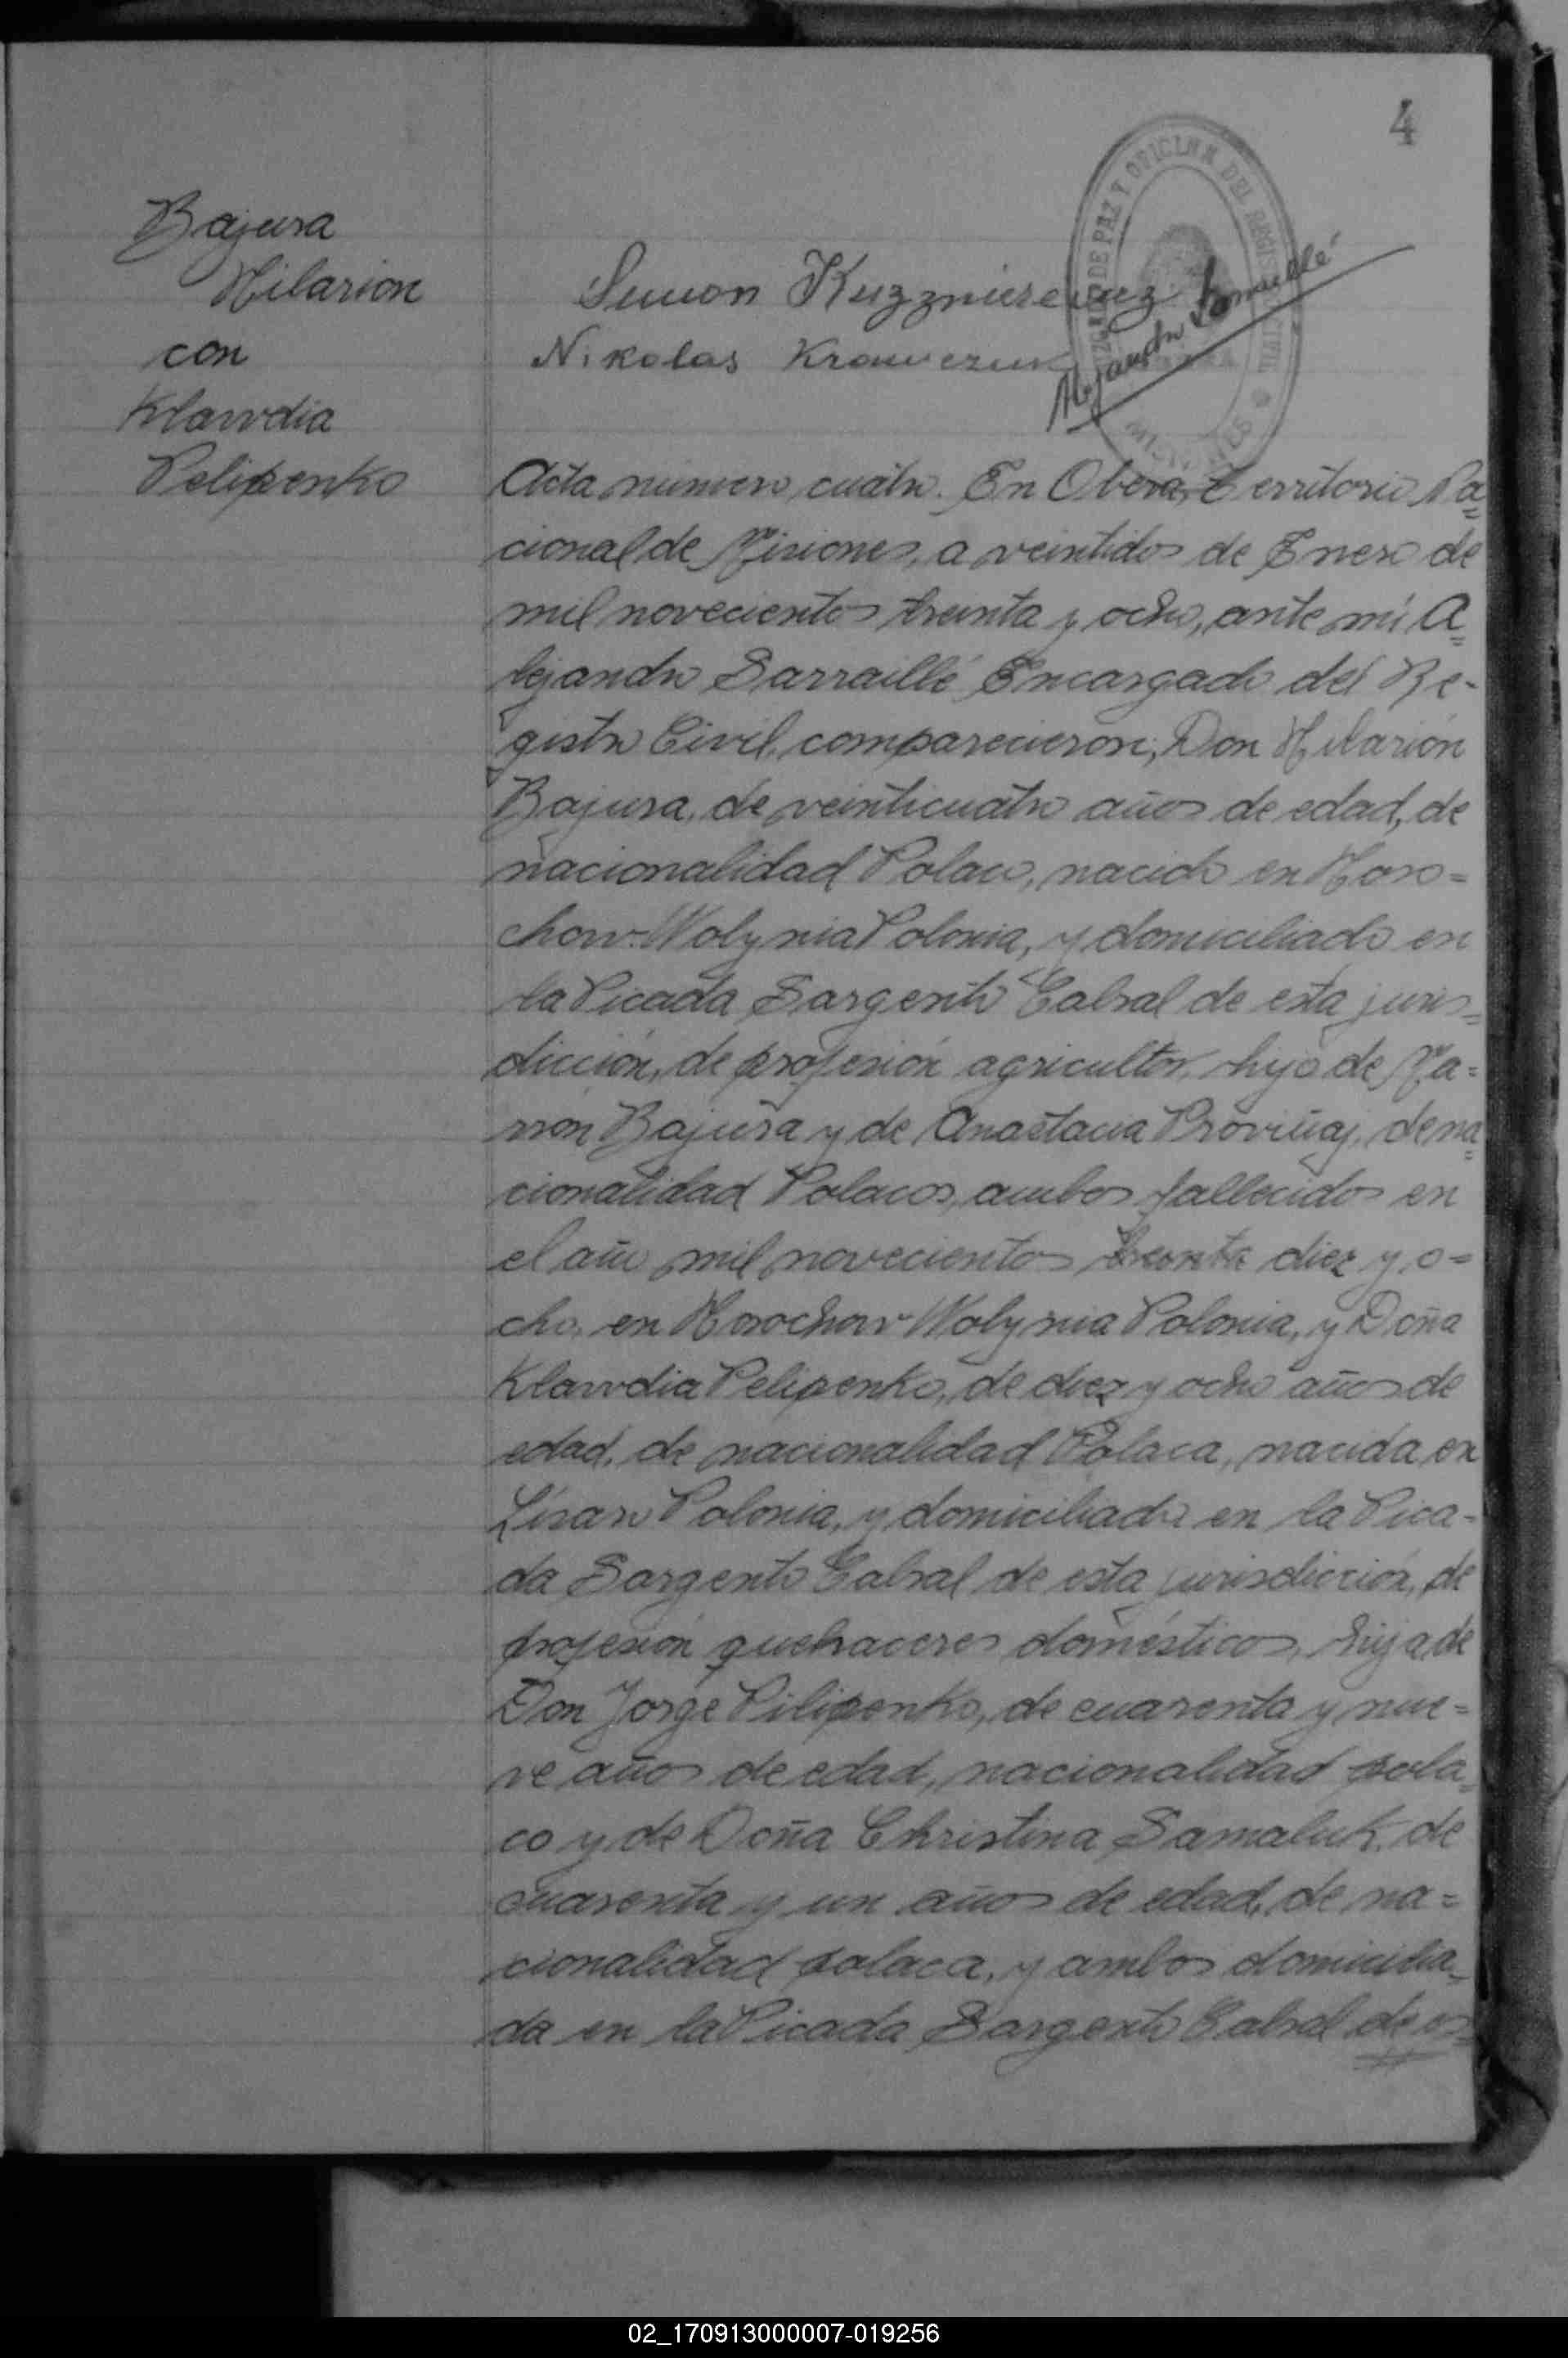 4
Bajura
Hilarion
con
Klawdia
Pelipenko
JUZGADO DE PAZ Y OFICINA DEL REGISTRO CIVIL
MISIONES
Simon Kuzznierewicz
Nikolas Krawczuk
Alejandro Sarraillé
Acta número cuatro. En Oberá, Territorio Na=
cional de Misiones, a veintidos de Enero de
mil novecientos treinta y ocho, ante mí A=
lejandro Sarraillé Encargado del Re-
gistro Civil, comparecieron; Don Hilarión
Bajura, de veinticuatro años de edad, de
nacionalidad Polaco, nacido en Horo=
chow-Wolynia Polonia, y domiciliado en
la Picada Sargento Cabral de esta juris=
dicción, de profesión agricultor, hijo de Ma=
Bajura y de Anastacia de na=
cionalidad Polacos, ambos fallecidos en
el año mil novecientos treinta diez y o=
cho, en Horochow Wolynia Polonia, y Doña
Klawdia Pelipenko, de diez y ocho años de
edad, de nacionalidad Polaca, nacida en
Polonia, y domiciliada en la Pica-
da Sargento Cabral de esta jurisdicción, de
profesión quehaceres domésticos, hija de
Don Jorge Pilipenko, de cuarenta y nue=
ve años de edad, nacionalidad pola=
co y de Doña Christina Samaluk, de
cuarenta y un años de edad, de na=
cionalidad polaca, y ambos domicilia=
da en la Picada Sargento Cabral de es=
02_170913000007-019256